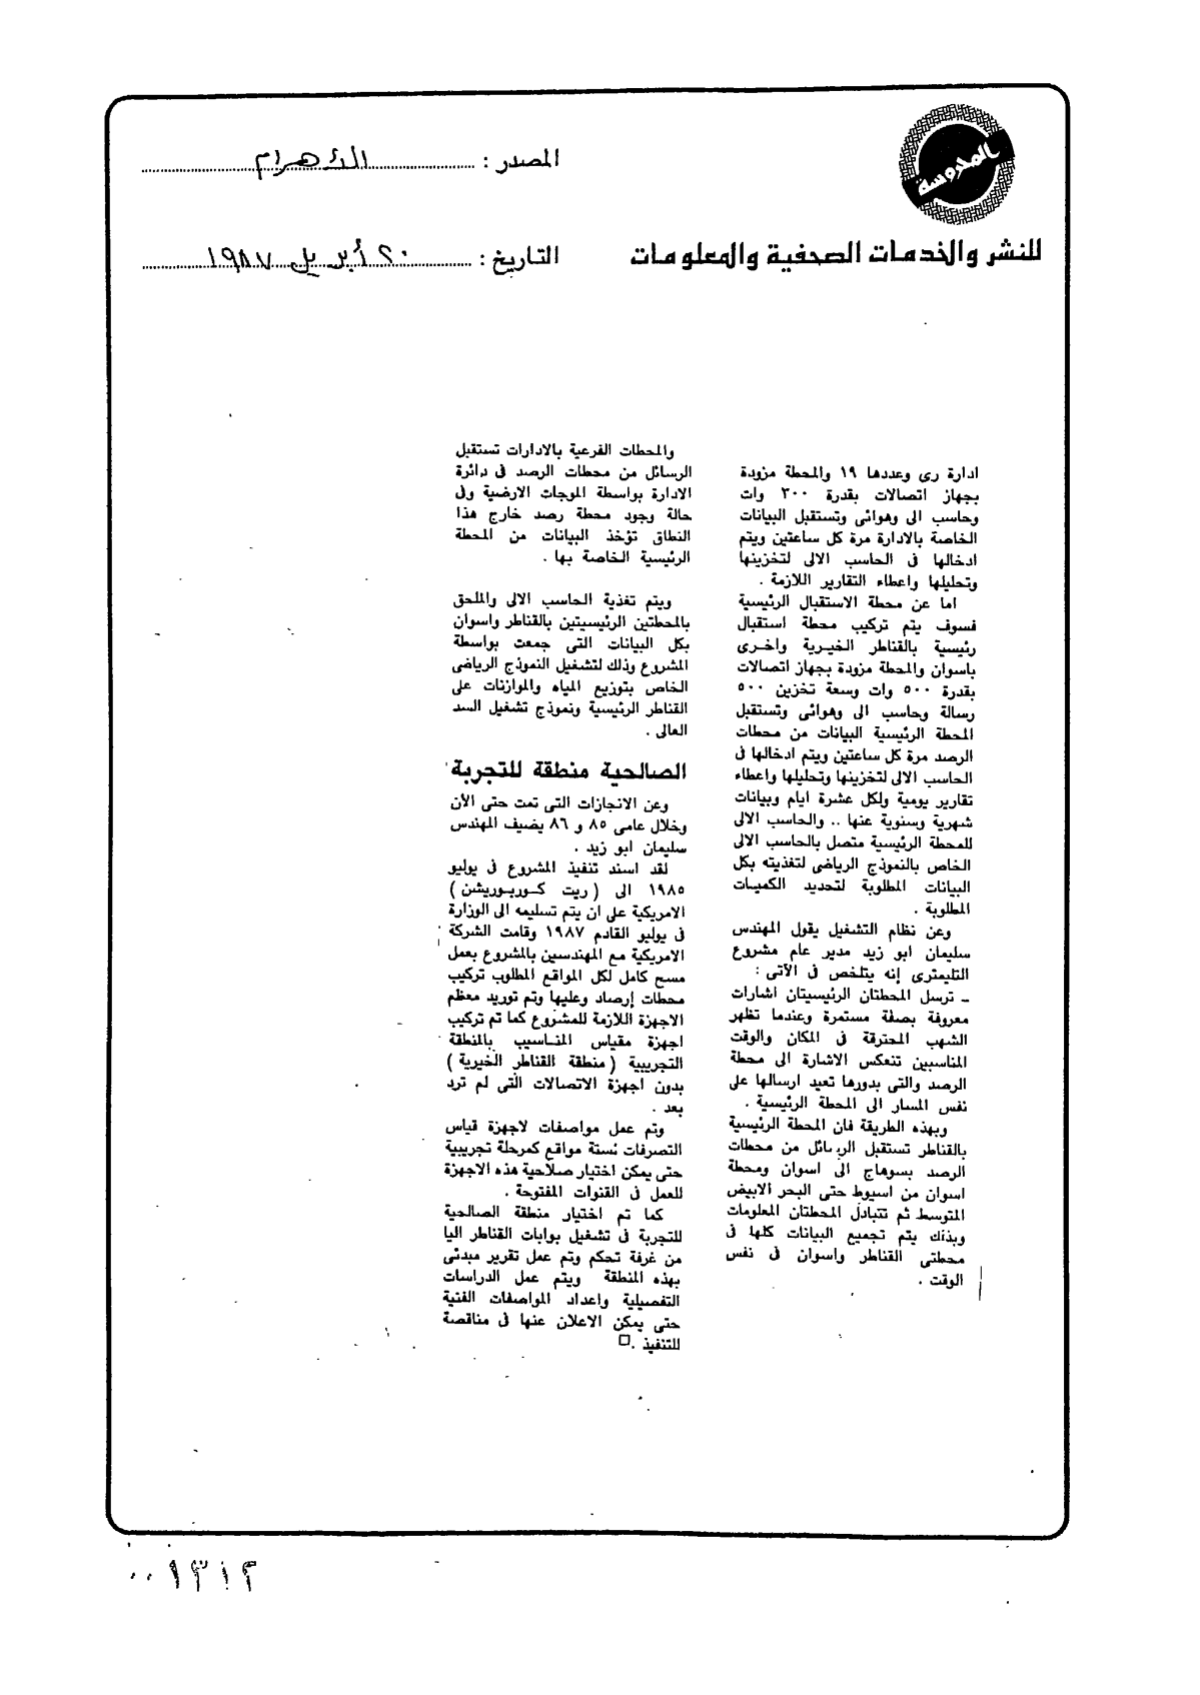 المحروسة
للنشر والخدمات الصحفية والمعلومات
المصدر : الأهرام
التاريخ : ٢٠ أبريل ١٩٨٧
ادارة رى وعددها ١٩ والمحطة مزودة
بجهاز اتصالات بقدرة ٣٠٠ وات
وحاسب الى وهوائى وتستقبل البيانات
الخاصة بالادارة مرة كل ساعتين ويتم
ادخالها فى الحاسب الالى لتخزينها
وتحليلها واعطاء التقارير اللازمة .
اما عن محطة الاستقبال الرئيسية
فسوف يتم تركيب محطة استقبال
رئيسية بالقناطر الخيرية واخرى
باسوان والمحطة مزودة بجهاز اتصالات
بقدرة ٥٠٠ وات وسعة تخزين ٥٠٠
رسالة وحاسب الى وهوائى وتستقبل
المحطة الرئيسية البيانات من محطات
الرصد مرة كل ساعتين ويتم ادخالها فى
الحاسب الالى لتخزينها وتحليلها واعطاء
تقارير يومية ولكل عشرة ايام وبيانات
شهرية وسنوية عنها .. والحاسب الالى
للمحطة الرئيسية متصل بالحاسب الالى
الخاص بالنموذج الرياضى لتغذيته بكل
البيانات المطلوبة لتحديد الكميات
المطلوبة .
وعن نظام التشغيل يقول المهندس
سليمان ابو زيد مدير عام مشروع
التليمترى إنه يتلخص فى الآتى :
ـ ترسل المحطتان الرئيسيتان اشارات
معروفة بصفة مستمرة وعندما تظهر
الشهب المحترقة فى المكان والوقت
المناسبين تنعكس الاشارة الى محطة
الرصد والتى بدورها تعيد ارسالها على
نفس المسار الى المحطة الرئيسية .
وبهذه الطريقة فان المحطة الرئيسية
بالقناطر تستقبل الرسائل من محطات
الرصد بسوهاج الى اسوان ومحطة
اسوان من اسيوط حتى البحر الابيض
المتوسط ثم تتبادل المحطتان المعلومات
وبذلك يتم تجميع البيانات كلها فى
محطتى القناطر واسوان فى نفس
الوقت .
والمحطات الفرعية بالادارات تستقبل
الرسائل من محطات الرصد فى دائرة
الادارة بواسطة الموجات الارضية وفى
حالة وجود محطة رصد خارج هذا
النطاق تؤخذ البيانات من المحطة
الرئيسية الخاصة بها .
ويتم تغذية الحاسب الالى والملحق
بالمحطتين الرئيسيتين بالقناطر واسوان
بكل البيانات التى جمعت بواسطة
المشروع وذلك لتشغيل النموذج الرياضى
الخاص بتوزيع المياه والموازنات على
القناطر الرئيسية ونموذج تشغيل السد
العالى .
الصالحية منطقة للتجربة
وعن الانجازات التى تمت حتى الأن
وخلال عامى ٨٥ و ٨٦ يضيف المهندس
سليمان ابو زيد .
لقد اسند تنفيذ المشروع فى يوليو
١٩٨٥ الى ( ريت كوربوريشن )
الامريكية على ان يتم تسليمه الى الوزارة
فى يوليو القادم ١٩٨٧ وقامت الشركة
الامريكية مع المهندسين بالمشروع بعمل
مسح كامل لكل المواقع المطلوب تركيب
محطات إرصاد وعليها وتم توريد معظم
الاجهزة اللازمة للمشروع كما تم تركيب
اجهزة مقياس المناسيب بالمنطقة
التجريبية ( منطقة القناطر الخيرية )
بدون اجهزة الاتصالات التى لم ترد
بعد .
وتم عمل مواصفات لاجهزة قياس
التصرفات لستة مواقع كمرحلة تجريبية
حتى يمكن اختيار صلاحية هذه الاجهزة
للعمل فى القنوات المفتوحة .
كما تم اختيار منطقة الصالحية
للتجربة فى تشغيل بوابات القناطر اليا
من غرفة تحكم وتم عمل تقرير مبدئى
بهذه المنطقة ويتم عمل الدراسات
التفصيلية واعداد المواصفات الفنية
حتى يمكن الاعلان عنها فى مناقصة
للتنفيذ . □
٠٠١٣١٢